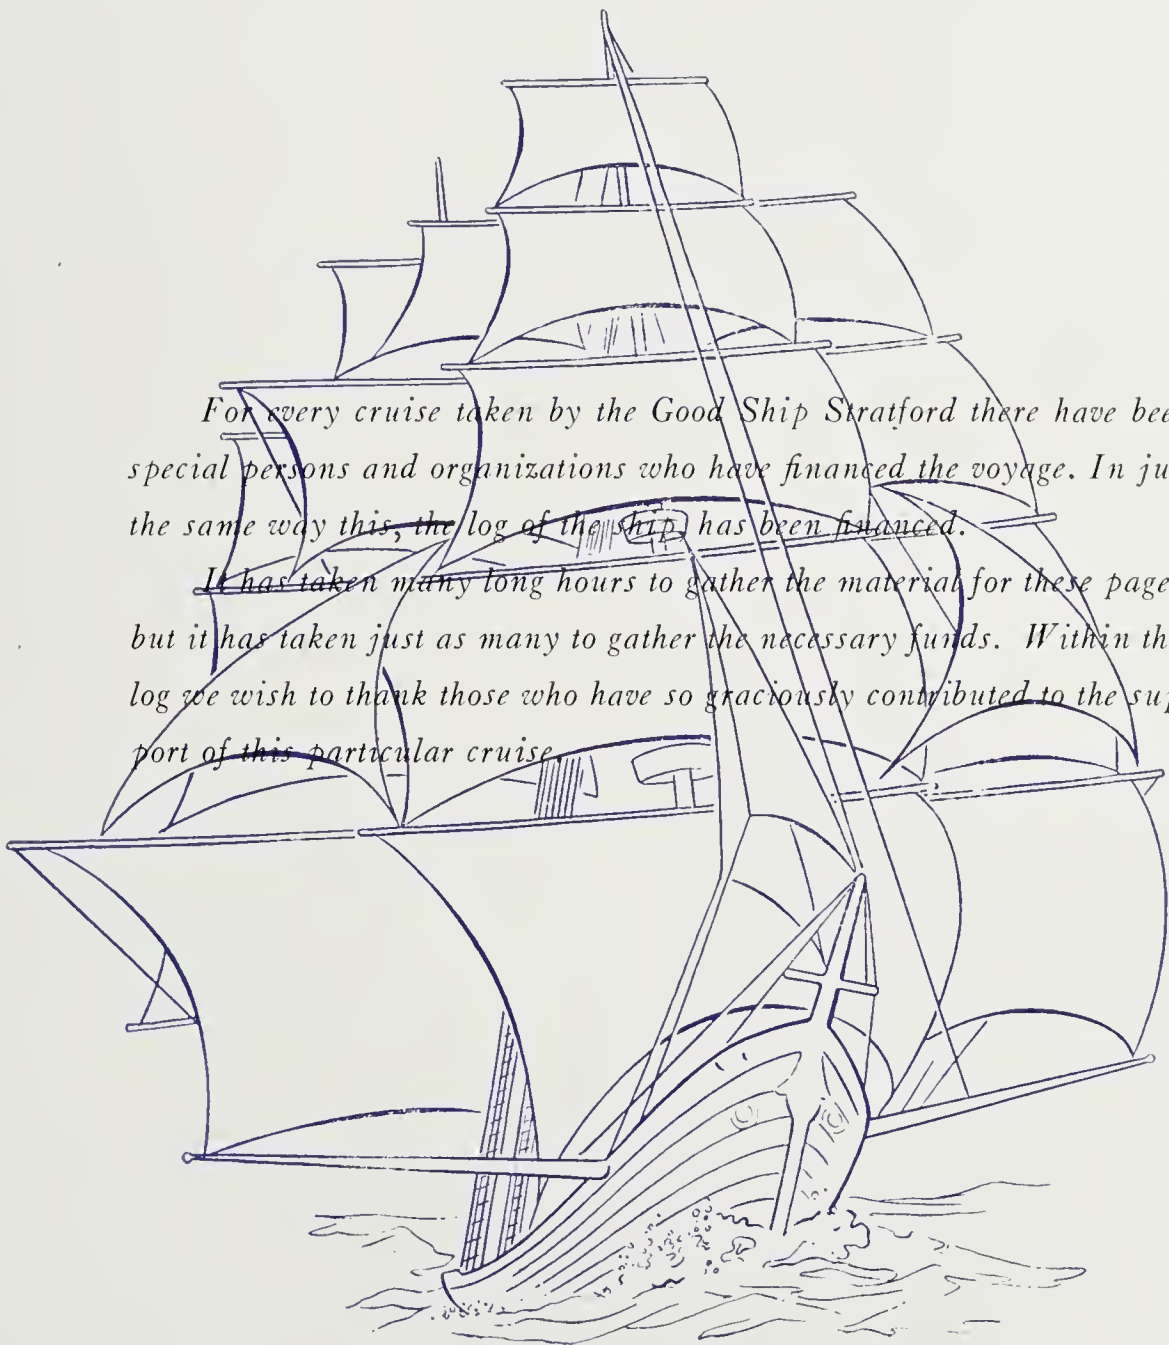 For every cruise taken by the Good Ship Stratford there have bee
special persons and organizations who have financed the voyage. In ju
the same way this, the log of the ship, has been financed.
It has taken many long hours to gather the material for these page
but it has taken just as many to gather the necessary funds. Within th
log we wish to thank those who have so graciously contributed to the sup
port of this particular cruise.